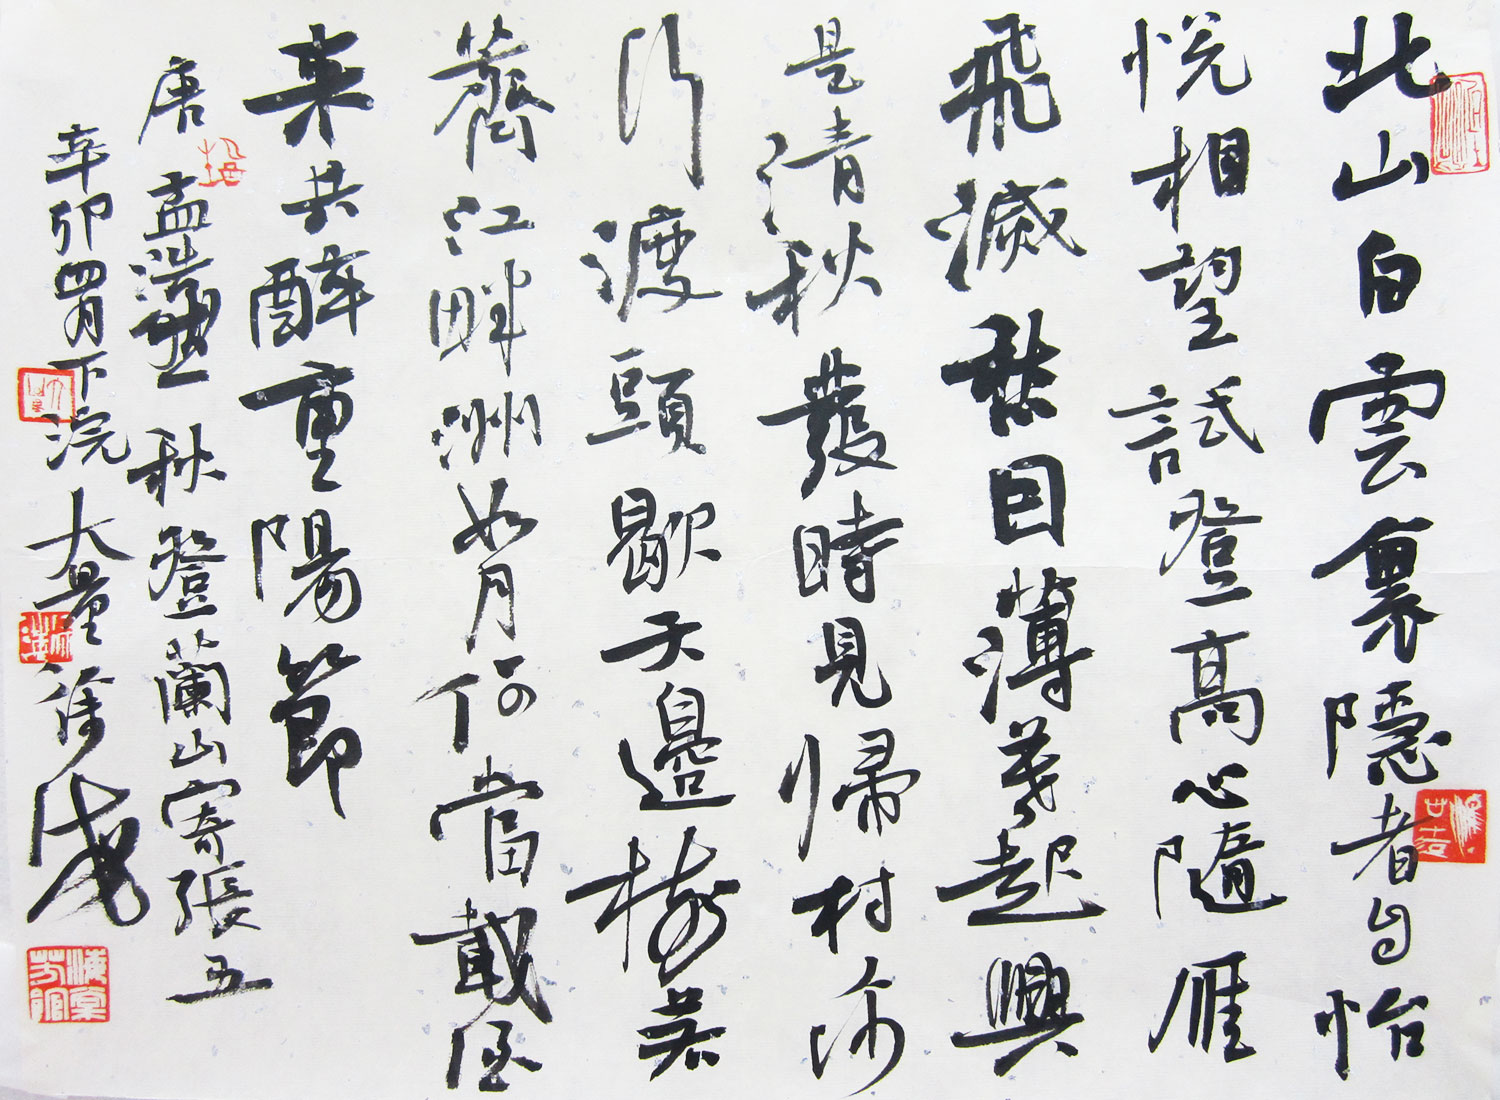 北山白雲裏隱者自怡
悦相望試登高心隨雁
飛滅愁因薄暮起興
是清秋發時見帰村沙
行渡頭歇天邊樹若
薺江畔洲如月何當載酒
来共醉重陽節
唐孟浩然秋登蘭山寄張五
辛卯四月下浣大量徐
海棠芳館